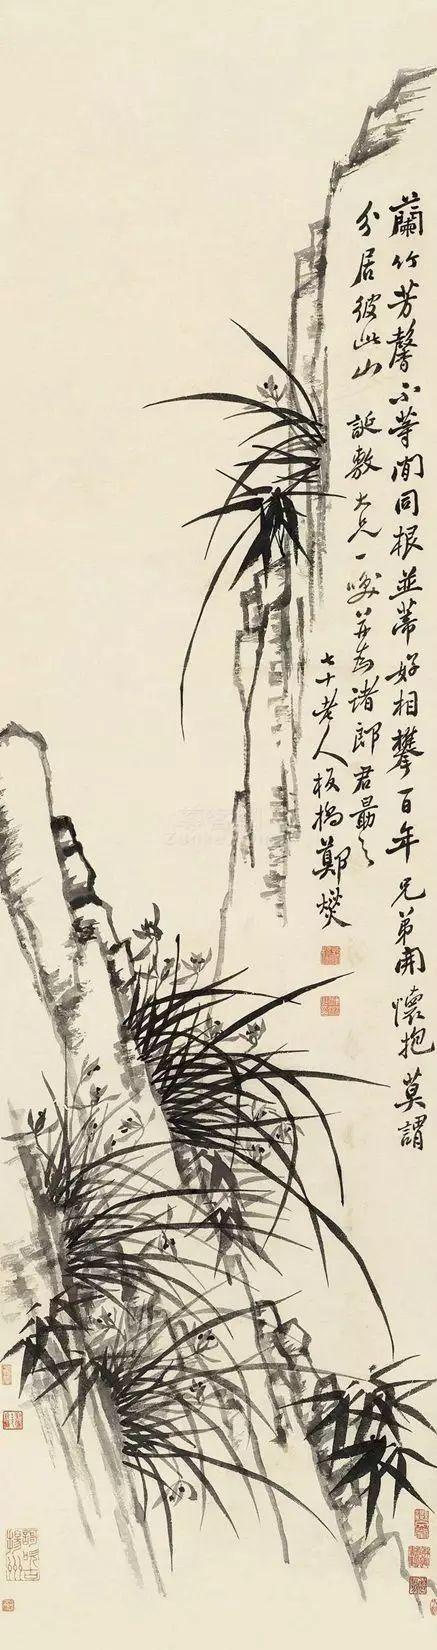 蘭竹芳馨不等閒同根並蒂好相攀百年兄弟開懷抱莫謂
分居彼此山 誕敷大兄一咲並為諸郎君勗之
七十老人板橋鄭燮